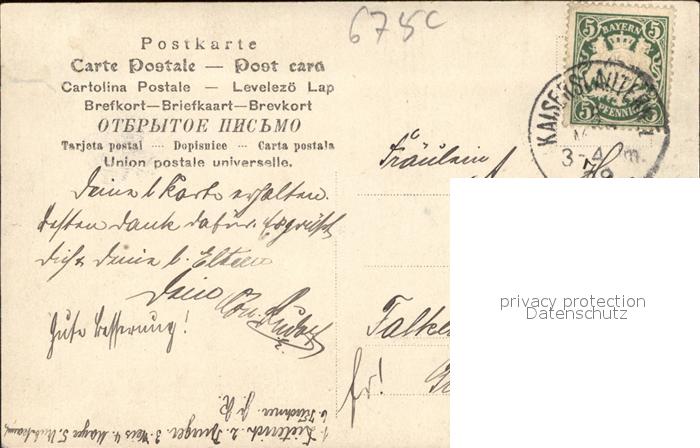 675c
Postkarte
Carte Postale — Post card
Cartolina Postale — Levelező Lap
Brefkort—Briefkaart—Brevkort
ОТКРЫТОЕ ПИСЬМО
Tarjeta postal — Dopisnice — Carta postala
Union postale universelle.
5 5
BAYERN
5 PFENNIG 5
KAISERSLAUTERN
3-4
Fräulein
Deine l. Karte erhalten.
Besten Dank dafür. Es grüßt
dich & deine l. Eltern
Dein
Gute Besserung!
privacy protection
Datenschutz
Falken
fr!
1. Dieterich 2. 3. 4. Mayer 5.
6. Kirchner